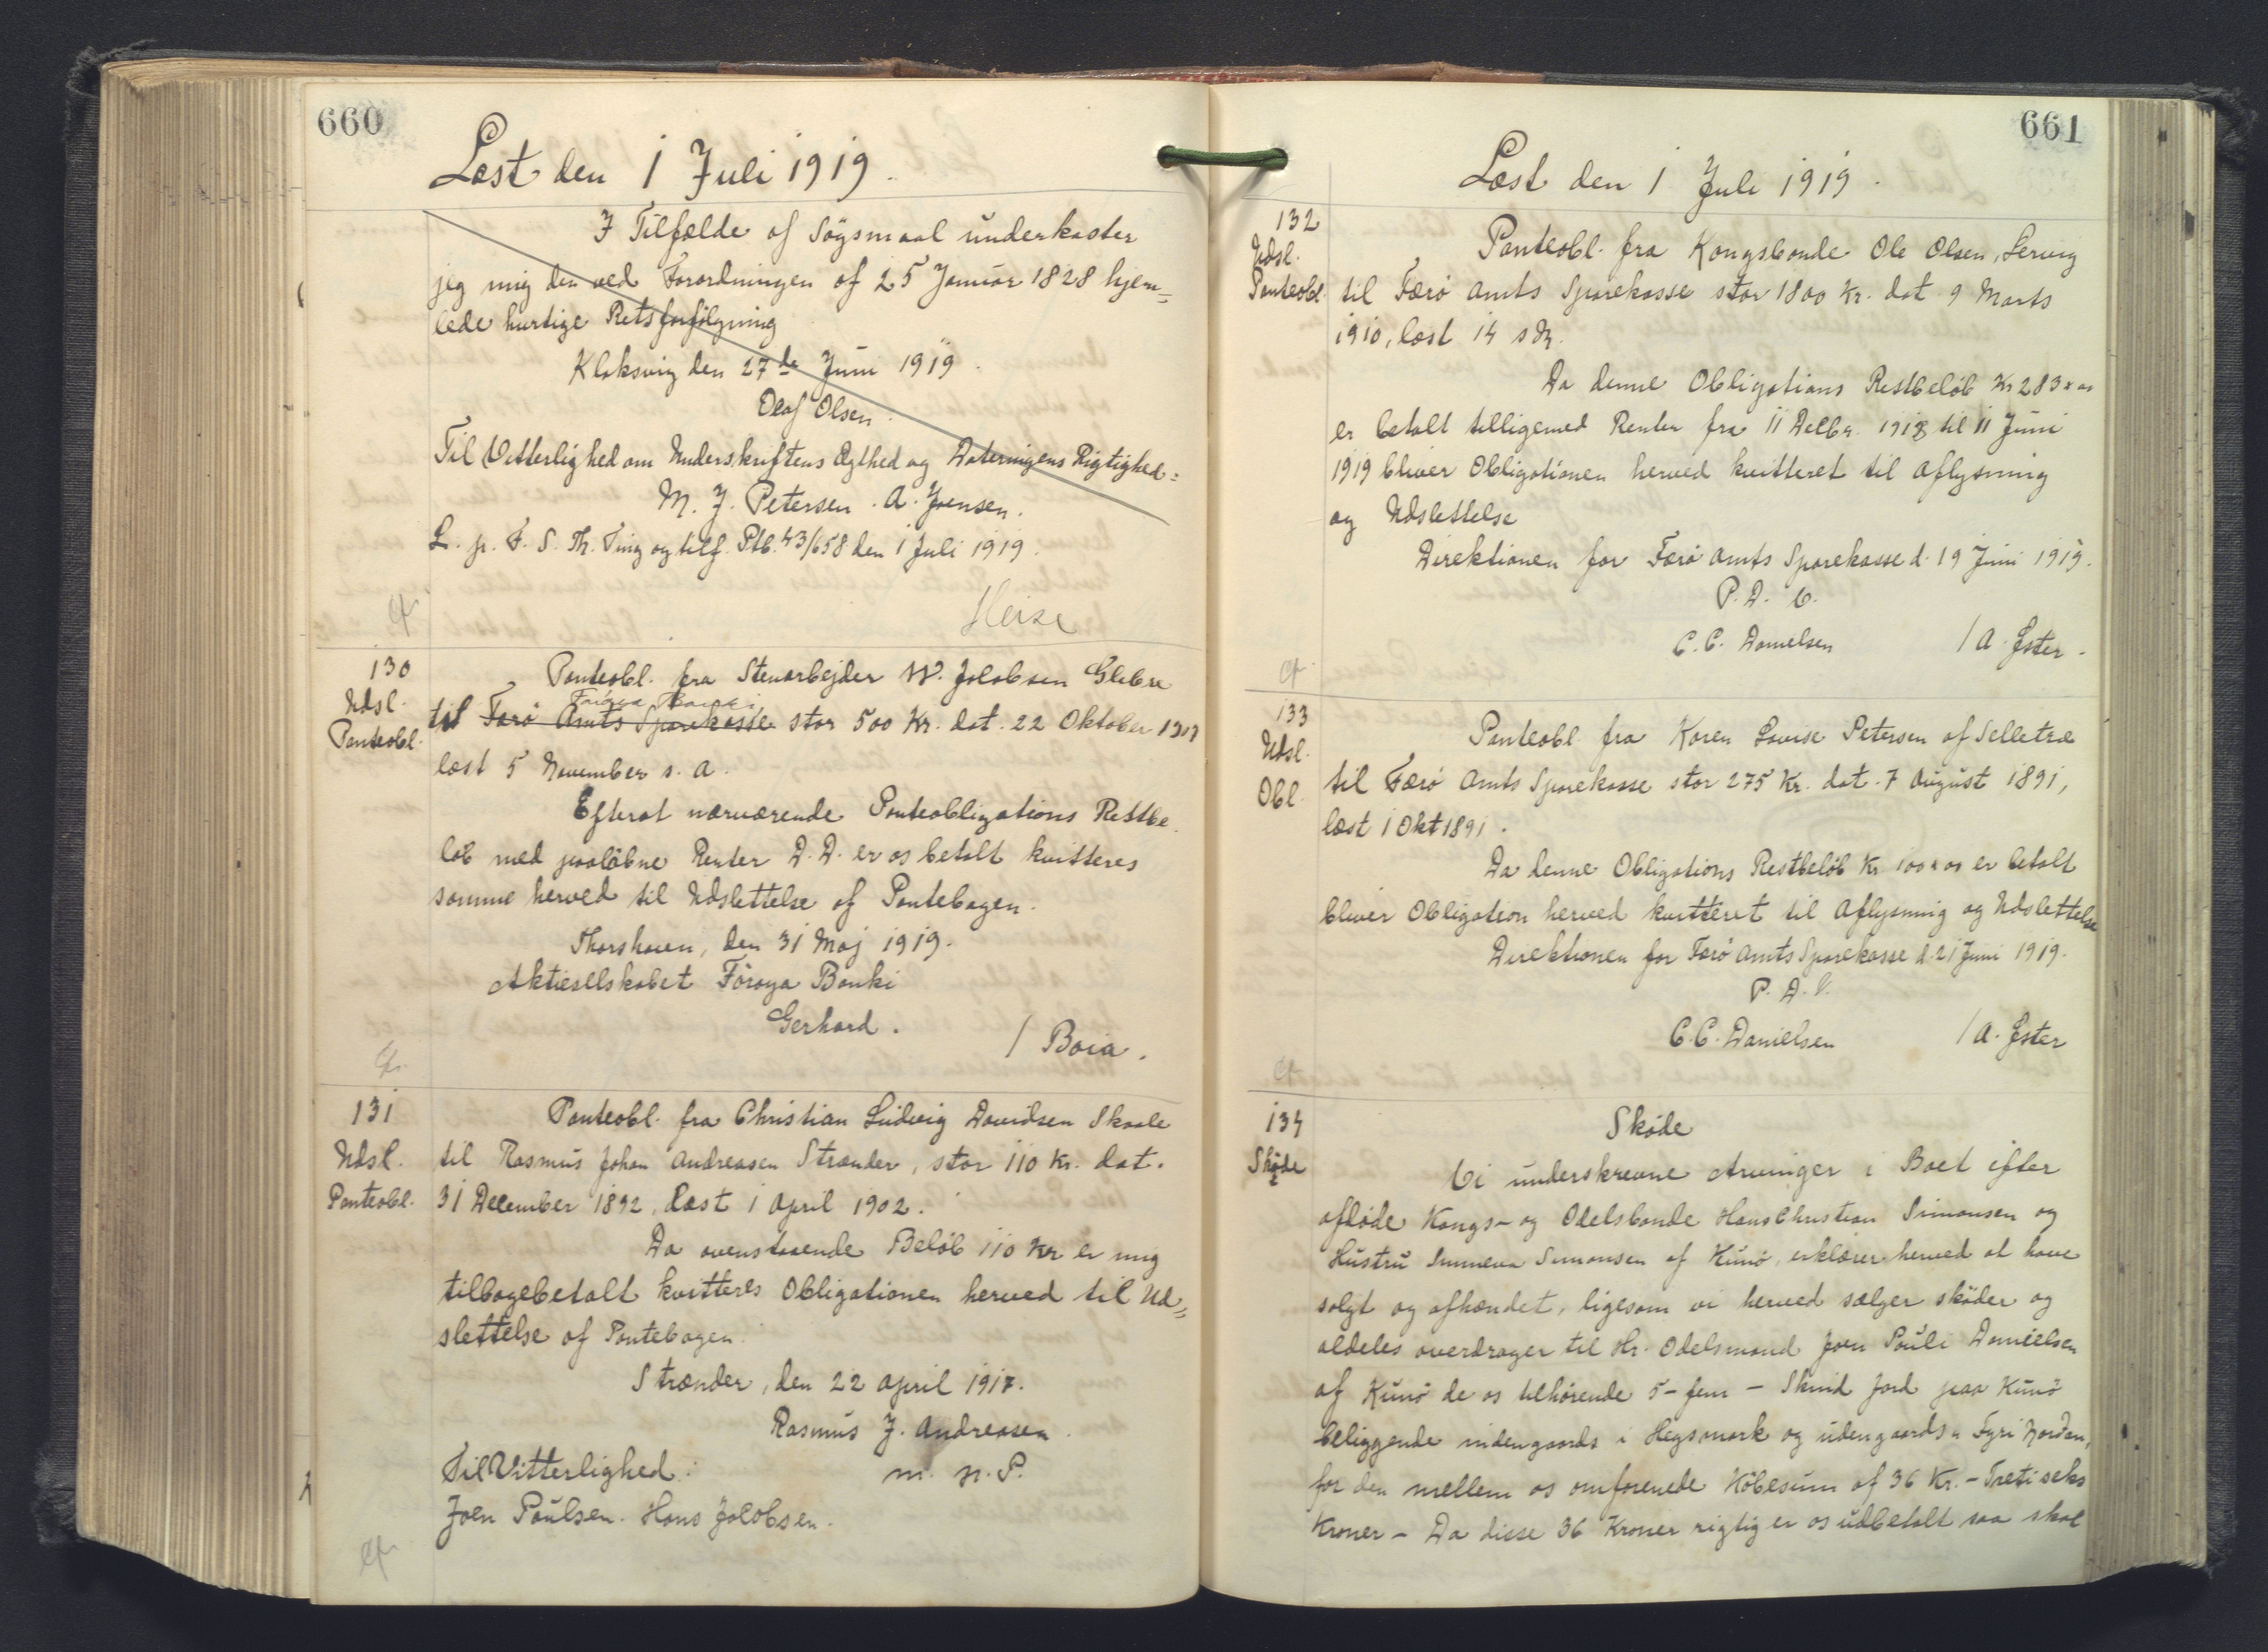 660
Læst den 1 Juli 1919.
I Tilfælde af Søgsmaal underkaster
jeg mig den ved Forordningen af 25 Januar 1828 hjem=
lede hurtige Retsforfølgning
Klaksvig den 27de Juni 1919.
Olaf Olsen.
Til Vitterlighed om Underskriftens Ægthed og Dateringens Rigtighed:
M. J. Petersen. A. Joensen.
L. p. F. S. Th. Ting og tilf. Ptb. 43/658 den 1 Juli 1919.
Heise
130
Udsl.
Panteobl.
Panteobl. fra Stenarbejder W. Jakobsen Glebre
Föroya Banki
til Færø Amts Sparekasse stor 500 Kr. dat. 22 Oktober 1907
læst 5 November s. A.
Efterat nærværende Panteobligations Restbe
løb med paaløbne Renter D. D. er os betalt kvitteres
samme herved til Udslettelse af Pantebogen.
Thorshavn, den 31 Maj 1919.
Aktieselskabet Föroya Banki
Gerhard.
/ Boia.
131
Udsl.
Panteobl.
Panteobl. fra Christian Ludvig Davidsen Skaale
til Rasmus Johan Andreasen Strænder, stor 110 Kr. dat.
31 December 1892, læst 1 April 1902.
Da ovenstaaende Beløb 110 Kr er mig
tilbagebetalt kvitteres Obligationen herved til Ud=
slettelse af Pantebogen.
Strænder, den 22 April 1917.
Rasmus J. Andreasen.
Til Vitterlighed: m. p. P.
Joen Poulsen. Hans Jacobsen.
661
Læst den 1 Juli 1919.
132
Udsl.
Panteobl.
Panteobl. fra Kongsbonde Ole Olsen, Lervig
til Færø Amts Sparekasse stor 1800 Kr. dat. 9 Marts
1910, læst 14 s M.
Da denne Obligations Restbeløb Kr 283 x 00
er betalt tilligemed Renter fra 11 Decbr. 1918 til 11 Juni
1919 bliver Obligationen herved kvitteret til Aflysning
og Udslettelse
Direktionen for Færø Amts Sparekasse d. 19 Juni 1919.
P. D. V.
C. C. Danielsen / A. Ester.
133
Udsl.
Obl.
Panteobl. fra Karen Lovise Petersen af Selletræ
til Færø Amts Sparekasse stor 275 Kr. dat. 7 August 1891,
læst 1 Okt 1891.
Da denne Obligations Restbeløb Kr 100 x 00 er betalt
bliver Obligation herved kvitteret til Aflysning og Udslettelse
Direktionen for Færø Amts Sparekasse d. 21 Juni 1919.
P. D. V.
C. C. Danielsen / A. Ester
134
Skøde
Skøde
Vi underskrevne Arvinger i Boet efter
afdøde Kongs- og Odelsbonde Hans Christian Simonsen og
Hustru Sunneva Simonsen af Kunø, erklærer herved at have
solgt og afhændet, ligesom vi herved sælger skøder og
aldeles overdrager til Hr. Odelsmand Joen Pauli Danielsen
af Kunø de os tilhørende 5 - fem - Skind Jord paa Kunø
beliggende indengaards i Heygsmørk og udengaards i Fyri Nordan,
for den mellem os omforenede Købesum af 36 Kr. - Treti seks
Kroner - Da disse 36 Kroner rigtig er os udbetalt saa skal